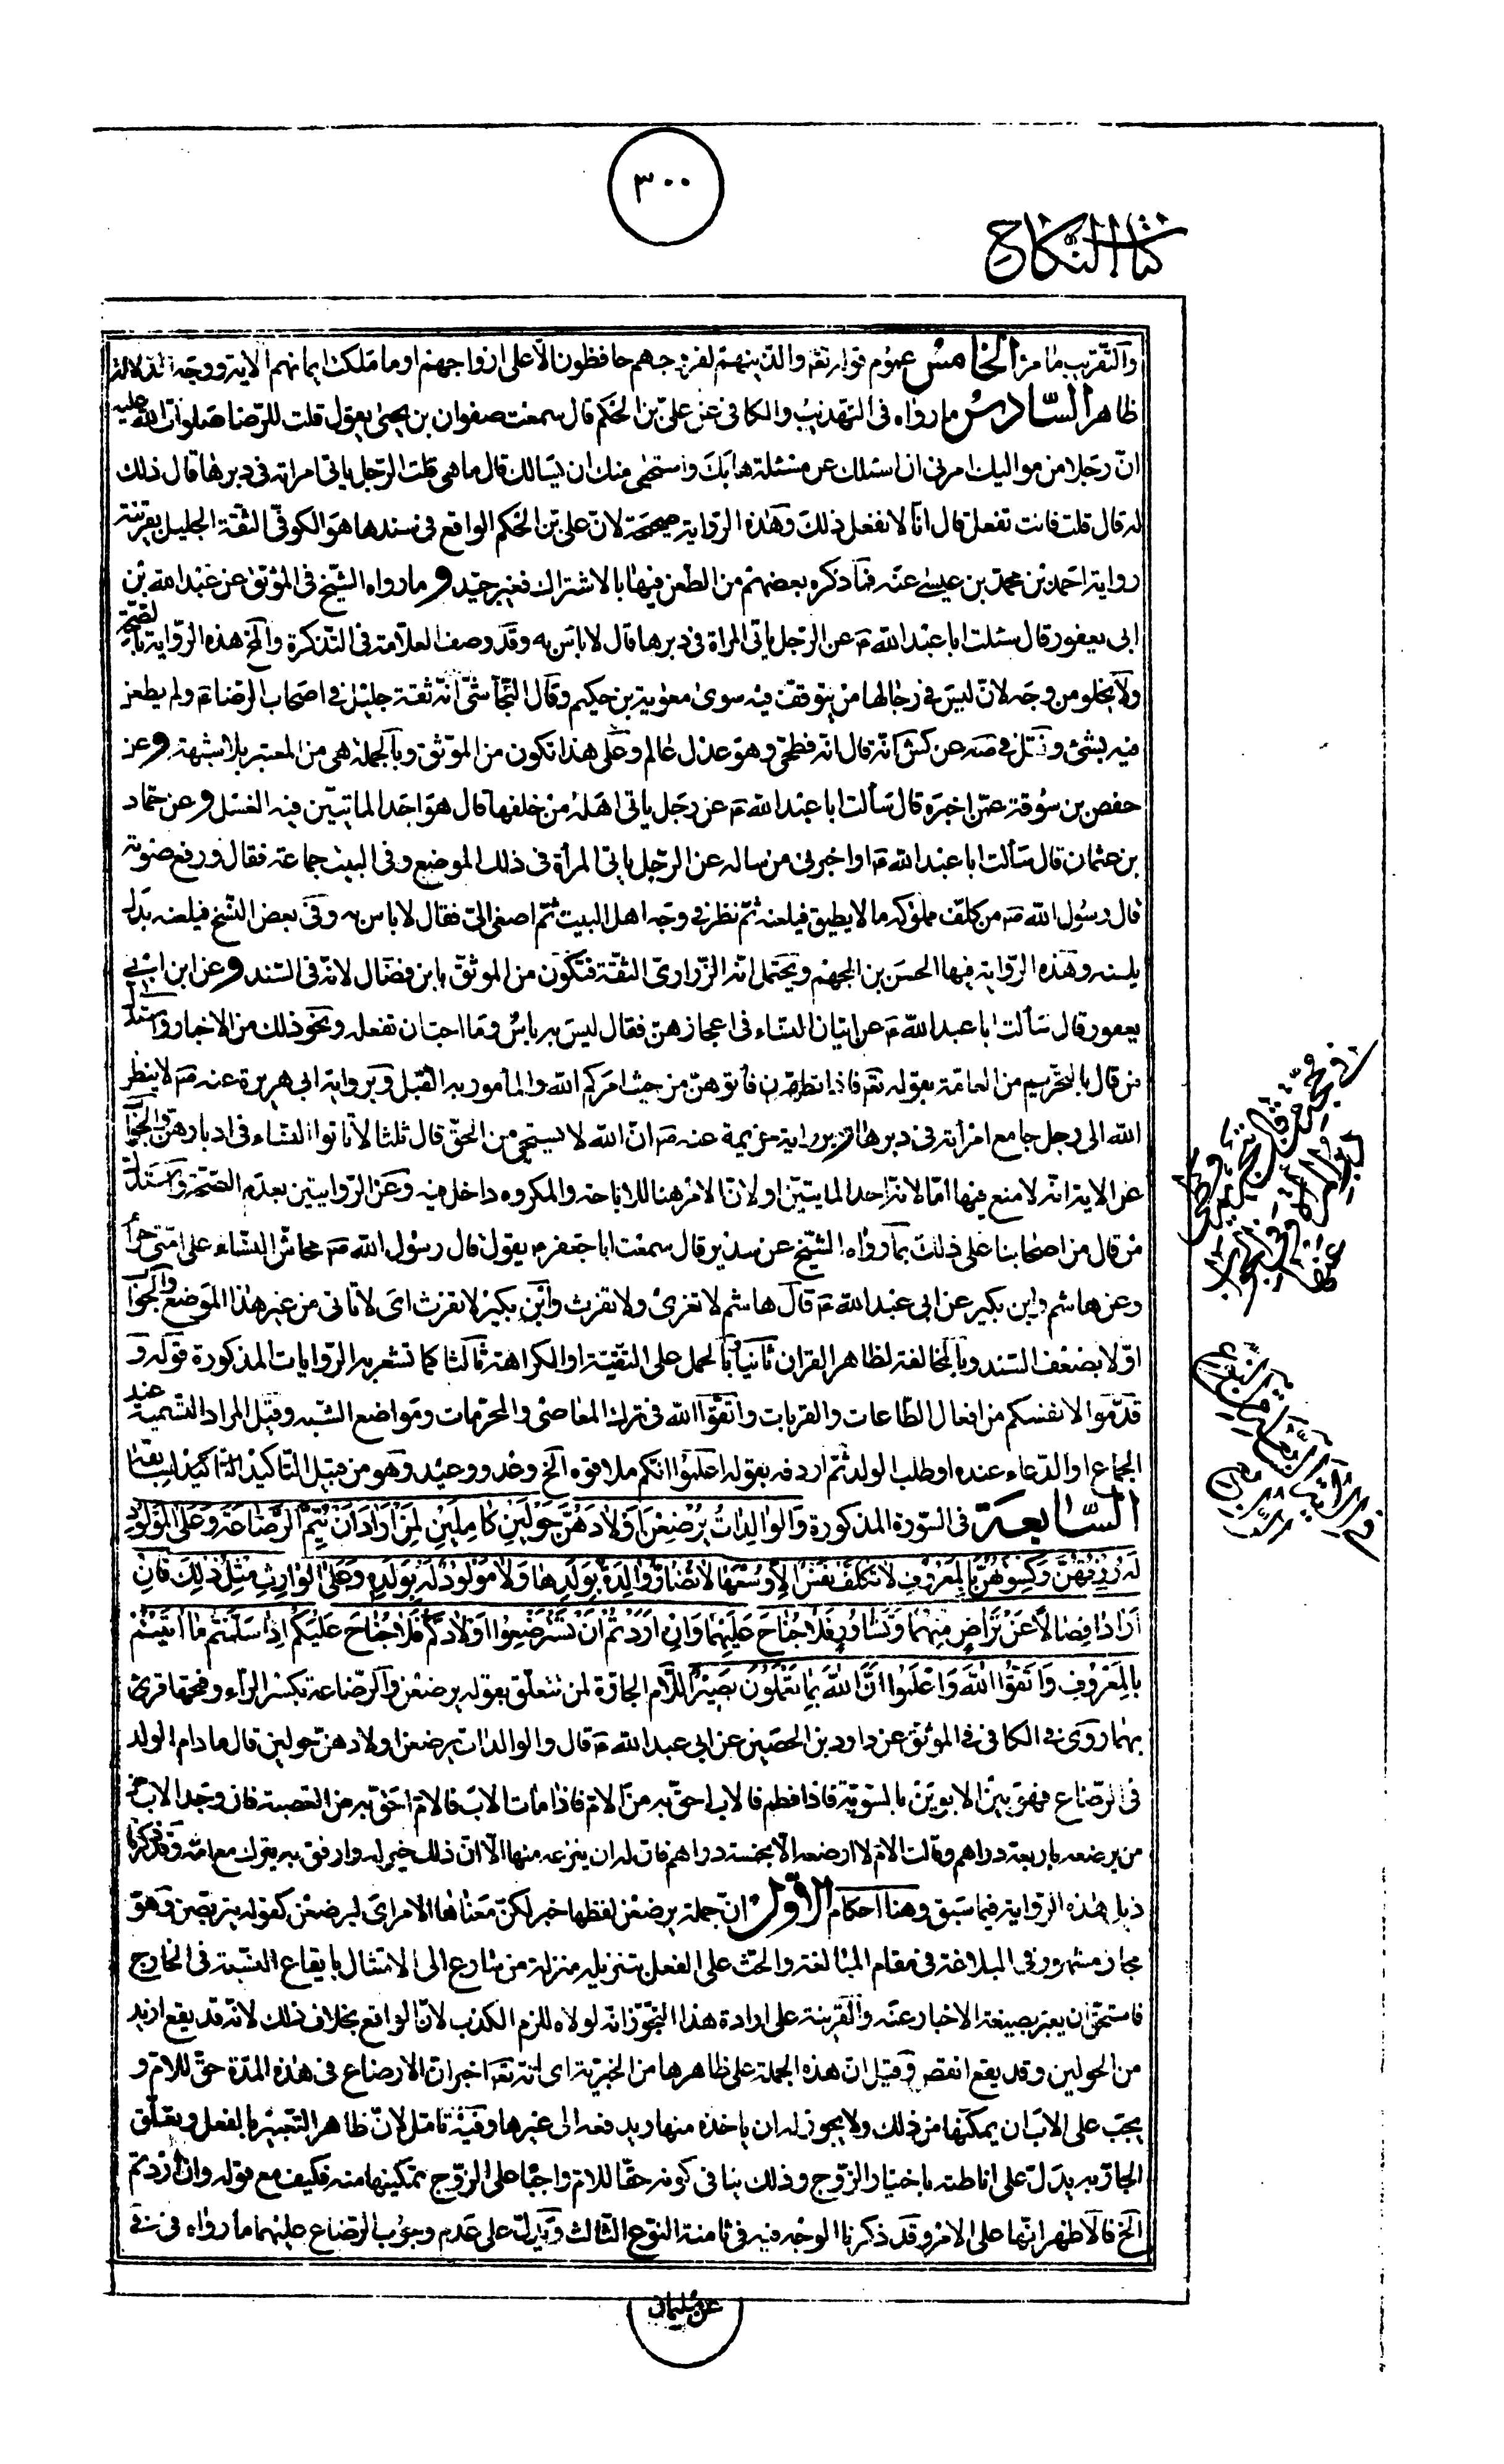 ٣٠٠
كتاب النكاح
والتقريب ما مر الخامس عموم قوله تعالى والذين هم لفروجهم حافظون الا على ازواجهم او ما ملكت ايمانهم الاية ووجه الدلالة
ظاهر السادس ما رواه في التهذيب والكافي عن علي بن الحكم قال سمعت صفوان بن يحيى يقول قلت للرضا صلوات الله عليه
ان رجلا من مواليك امرني ان اسئلك عن مسئلة هابك واستحيى منك ان يسالك قال ما هي قلت الرجل ياتي امراته في دبرها قال ذلك
له قال قلت فانت تفعل قال انا لا نفعل ذلك وهذه الرواية صحيحة لان علي بن الحكم الواقع في سندها هو الكوفي الثقة الجليل بقرينة
رواية احمد بن محمد بن عيسى عنه فما ذكره بعضهم من الطعن فيها بالاشتراك فغير جيد و ما رواه الشيخ في الموثق عن عبد الله بن
ابى يعفور قال سئلت ابا عبد الله ع عن الرجل ياتى المراة في دبرها قال لا باس به وقد وصف العلامة في التذكرة والخ هذه الرواية بالصحة
ولا يخلو من وجه لان ليس في رجالها من يتوقف فيه سوى معوية بن حكيم وقال النجاشي انه ثقة جليل في اصحاب الرضا ع ولم يطعن
فيه بشئ و نقل في صه عن كش انه قال انه فطحي وهو عدل عالم وعلى هذا تكون من الموثق وبالجملة هي من المعتبر بلا شبهة وعن
حفص بن سوقة عمن اخبره قال سألت ابا عبد الله ع عن رجل ياتي اهله من خلفها قال هو احد الماتيين فيه الغسل وعن حماد
بن عثمان قال سألت ابا عبد الله ع او اخبرنى من ساله عن الرجل ياتي المرأة فى ذلك الموضع وفى البيت جماعة فقال ورفع صوته
قال رسول الله ص من كلف مملوكه ما لا يطيق فيلعنه ثم نظر في وجه اهل البيت ثم اصغى الى فقال لا باس به وفى بعض النسخ فيلعنه بدله
يلعنه وهذه الرواية فيها الحسن بن الجهم ويحتمل انه الزراري الثقة فتكون من الموثق بابن فضال لانه فى السند وعن ابن ابي
يعفور قال سألت ابا عبد الله ع عن اتيان النساء فى اعجازهن فقال ليس به باس وما احب ان تفعله ونحو ذلك من الاخبار واستدل
من قال بالتحريم من العامة بقوله تعالى فاذا تطهرن فأتوهن من حيث امركم الله والمأمور به القبل وبرواية ابى هريرة عنه ص لا ينظر
الله الى رجل جامع امرأته في دبرها وبرواية خزيمة عنه ص ان الله لا يستحيى من الحق قال ثلثا لا تأتوا النساء فى ادبارهن والجواب
عن الاية انه لا منع فيها اما لانه احد الماتيين او لان الامر هنا للاباحة والمكروه داخل فيه وعن الروايتين بعدم الصحة واستدل
من قال من اصحابنا على ذلك بما رواه الشيخ عن سدير قال سمعت ابا جعفر ع يقول قال رسول الله ص محاش النساء على امتي حرام
وعن هاشم وابن بكير عن ابى عبد الله ع قال هاشم لا تعرى ولا تفرث وابن بكير لا تفرث اى لا تاتى من غير هذا الموضع والجواب
اولا بضعف السند وبالمخالفة لظاهر القران ثانيا وبالحمل على التقية او الكراهة ثالثا كما تشعر به الروايات المذكورة قوله و
قدموا لانفسكم من افعال الطاعات والقربات واتقوا الله فى ترك المعاصى والمحرمات ومواضع الشبه وقيل المراد التسمية عند
الجماع او الدعاء عنده او طلب الولد ثم اردفه بقوله اعلموا انكم ملاقوه الخ وعد ووعيد وهو من قبيل التاكيد لسابقه
السابعة فى السورة المذكورة والوالدات يرضعن اولادهن حولين كاملين لمن اراد ان يتم الرضاعة وعلى المولود
له رزقهن وكسوتهن بالمعروف لا تكلف نفس الا وسعها لا تضار والدة بولدها ولا مولود له بولده وعلى الوارث مثل ذلك فان
ارادا فصالا عن تراض منهما وتشاور فلا جناح عليهما وان اردتم ان تسترضعوا اولادكم فلا جناح عليكم اذا سلمتم ما اتيتم
بالمعروف واتقوا الله واعلموا ان الله بما تعملون بصير اللام الجارة لمن تتعلق بقوله يرضعن والرضاعة بكسر الراء وفتحها قرئ
بهما روى في الكافى في الموثق عن داود بن الحصين عن ابي عبد الله ع قال والوالدات يرضعن اولادهن حولين قال ما دام الولد
فى الرضاع فهو بين الابوين بالسوية فاذا فطم فالاب احق به من الام فاذا مات الاب فالام احق به من العصبة فان وجد الاب
من يرضعه باربعة دراهم وقالت الام لا ارضعه الا بخمسة دراهم فان له ان ينزعه منها الا ان ذلك خير له وارفق به يترك مع امه وقد ذكرنا
ذيل هذه الرواية فيما سبق وهنا احكام الاول ان جملة يرضعن لفظها خبر لكن معناها الامر اى ليرضعن كقوله يتربصن وهو
مجاز مشهور في البلاغة فى مقام المبالغة والحث على الفعل بتنزيله منزلة من سارع الى الامتثال بايقاع النسبة فى الخارج
فاستحق ان يعبر بصيغة الاخبار عنه والقرينة على ارادة هذا التجوز انه لولاه للزم الكذب لان الواقع بخلاف ذلك لانه قد يقع ازيد
من الحولين وقد يقع انقص وقيل ان هذه الجملة على ظاهرها من الخبرية اى انه تعالى اخبر ان الارضاع فى هذه المدة حق للام و
يجب على الاب ان يمكنها من ذلك ولا يجوز له ان ياخذه منها ويدفعه الى غيرها وفيه تامل لان ظاهر التعبير بالفعل وتعلق
الجار به يدل على اناطته باختيار الزوج وذلك ينافى كونه حقا للام واجبا على الزوج تمكينها منه فكيف مع قوله وان اردتم
الخ فالاظهر انها على الامر وقد ذكرنا الوجه فيه فى ثامنة النوع الثالث ويدل على عدم وجوب الرضاع عليها ما رواه فى في
عن سليمان